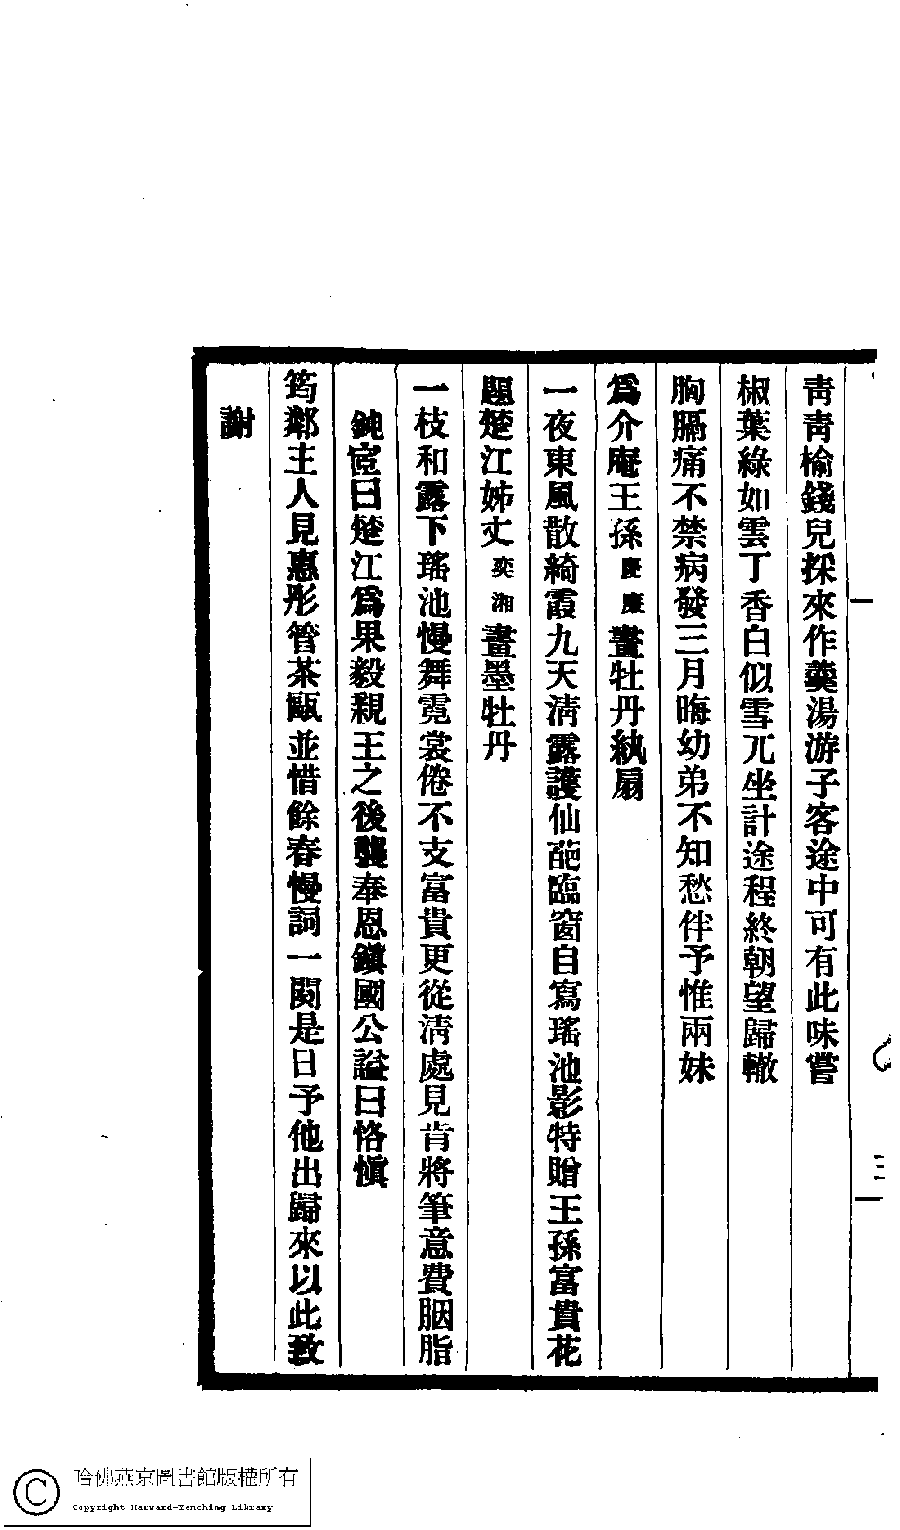 靑靑榆錢兒採來作羹湯游子客途中可有此味嘗
椒葉綠如雲丁香白似雪兀坐計途程終朝望歸轍
胸膈痛不禁病發三月晦幼弟不知愁伴予惟兩妹
爲介庵王孫慶廉畫牡丹紈扇
一夜東風散綺霞九天淸露護仙葩臨窗自寫瑤池影特贈王孫富貴花
題楚江姊丈奕湘畫墨牡丹
一枝和露下瑤池慢舞霓裳倦不支富貴更從淸處見肯將筆意費胭脂
鈍宧曰楚江爲果毅親王之後襲奉恩鎭國公謚曰恪愼
筠鄰主人見惠彤管茶甌並惜餘春慢詞一闋是日予他出歸來以此致
謝
哈佛燕京圖書館版權所有
Copyright Harvard-Yenching Library